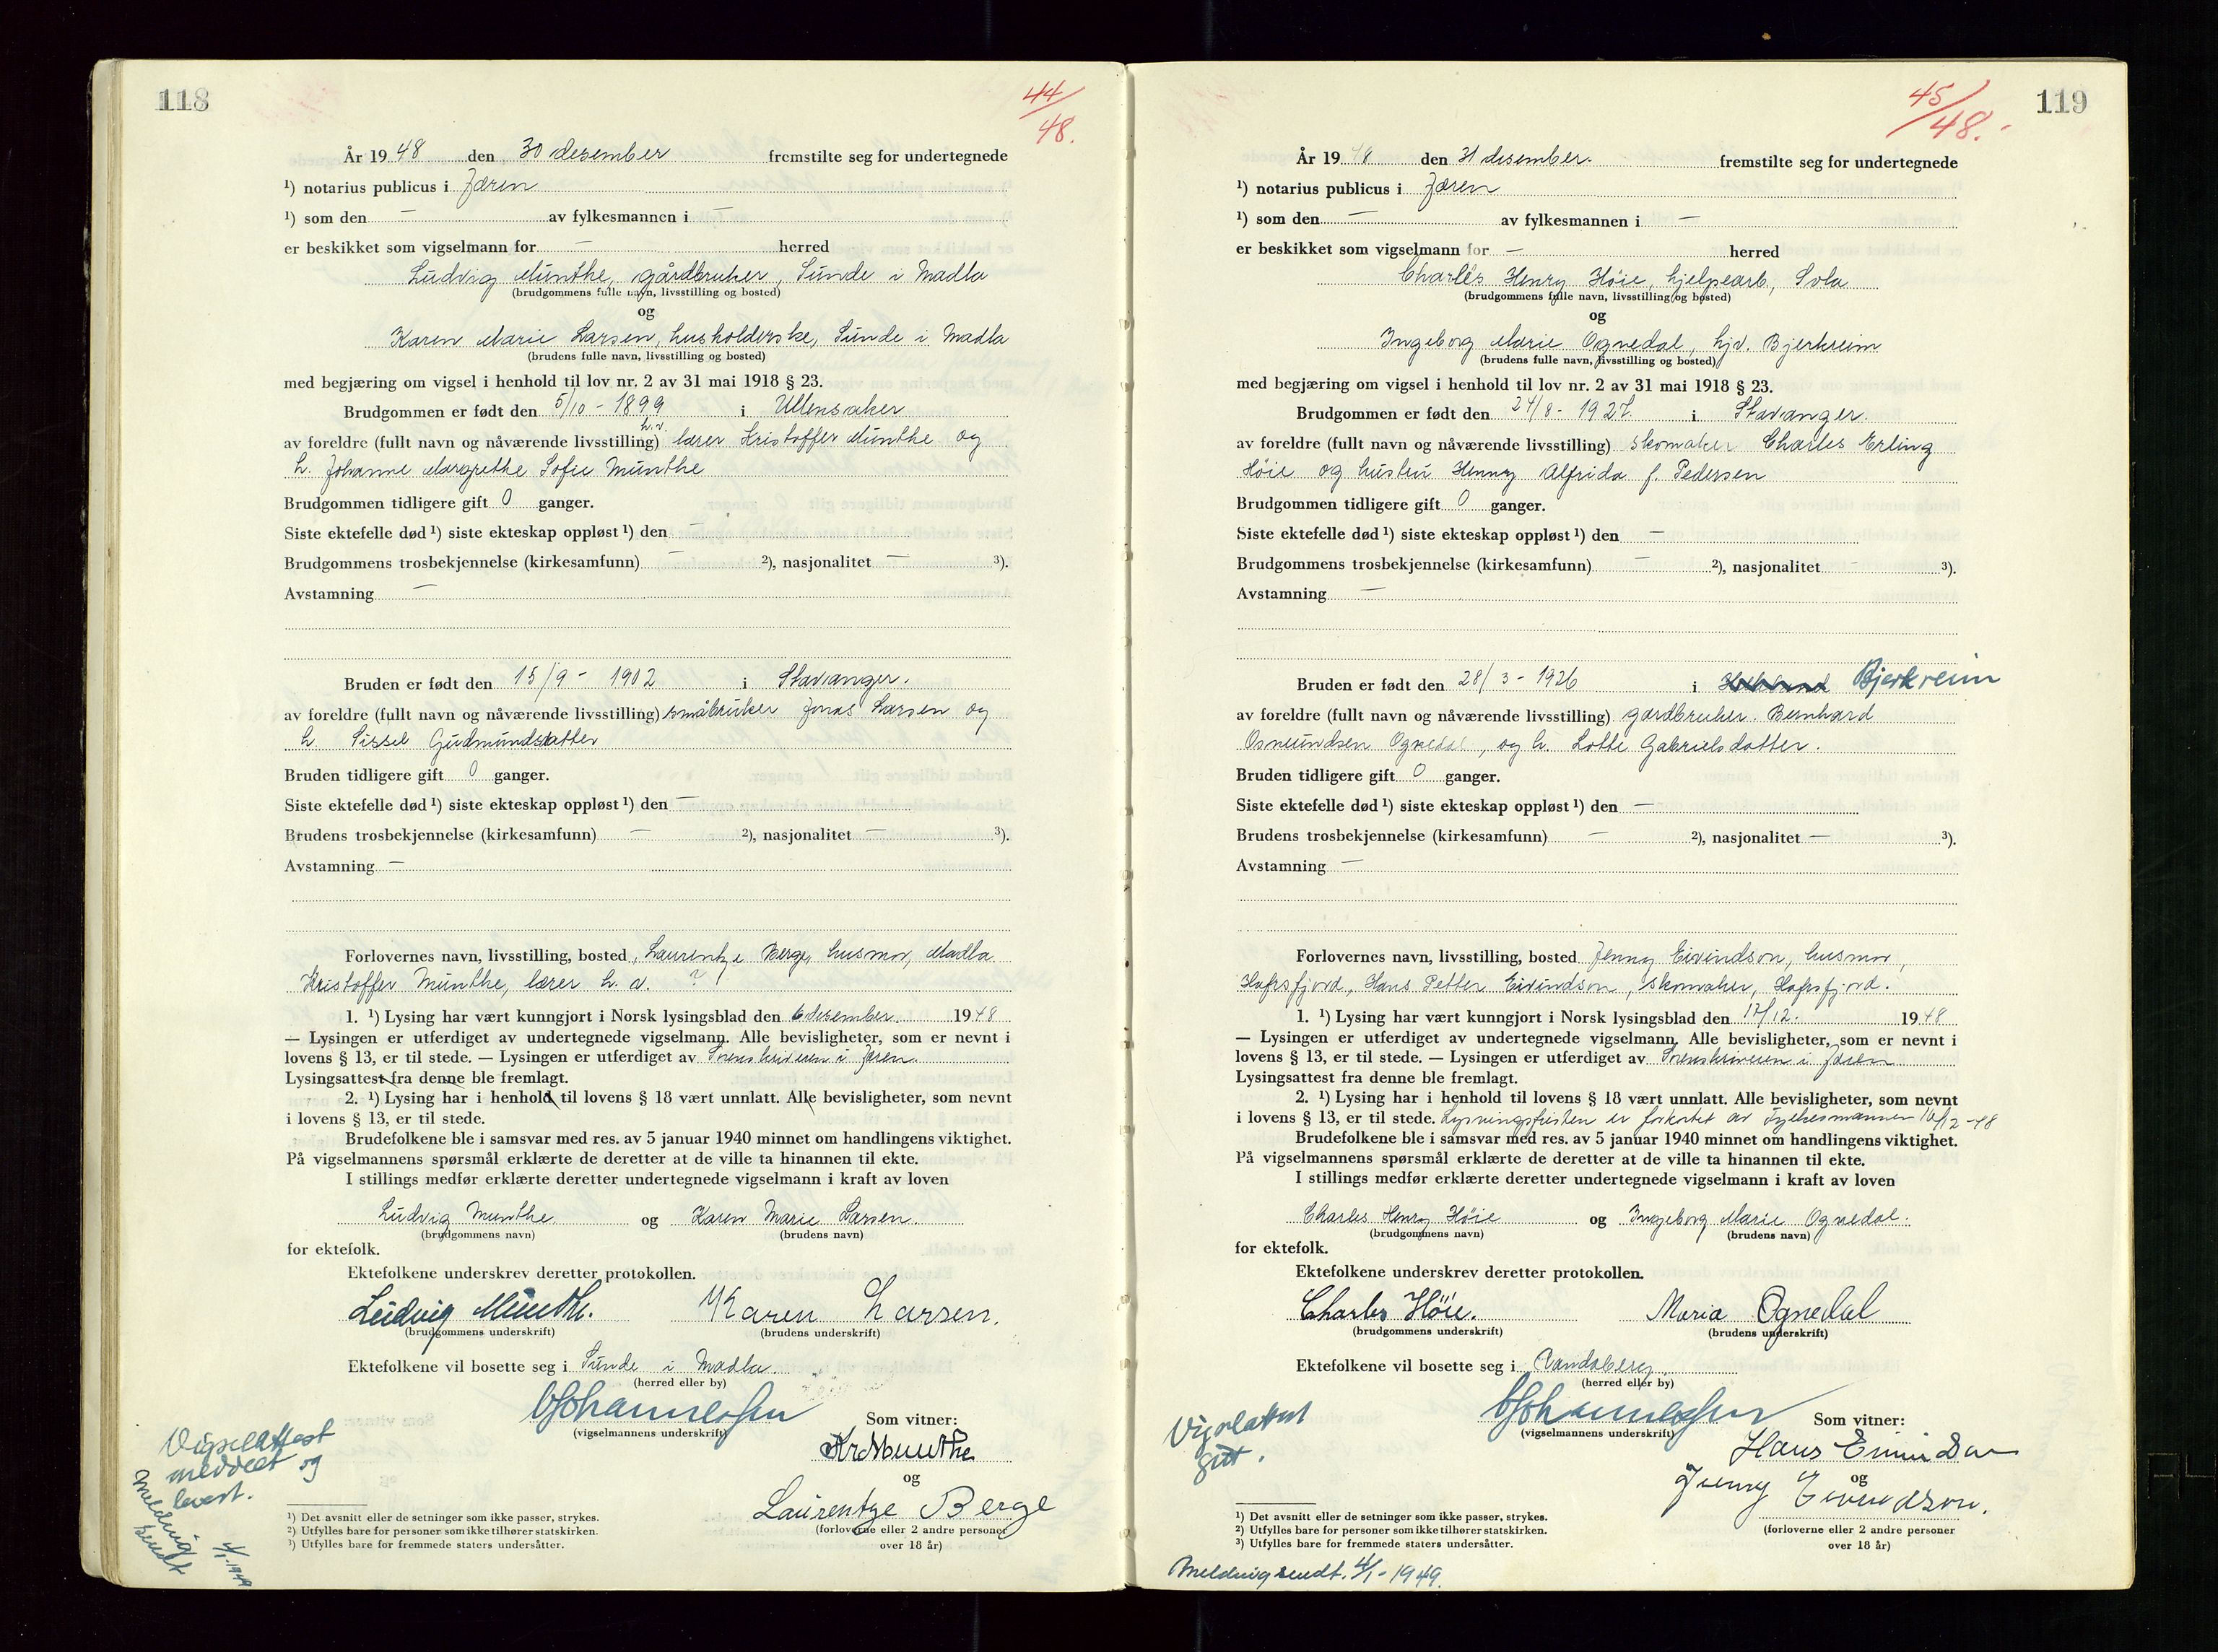 118
44/48.
År 19 48 den 30 desember fremstilte seg for undertegnede
¹) notarius publicus i Jæren
¹) som den — av fylkesmannen i —
er beskikket som vigselmann for — herred
Ludvig Munthe, gårdbruker, Sunde i Madla
(brudgommens fulle navn, livsstilling og bosted)
og
Karen Marie Larsen, husholderske, Sunde i Madla
(brudens fulle navn, livsstilling og bosted)
med begjæring om vigsel i henhold til lov nr. 2 av 31 mai 1918 § 23.
Brudgommen er født den 5/10 - 1899 i Ullensaker
h.v.
av foreldre (fullt navn og nåværende livsstilling) lærer Kristoffer Munthe og
h. Johanne Margrethe Sofie Munthe
Brudgommen tidligere gift 0 ganger.
Siste ektefelle død ¹) siste ekteskap oppløst ¹) den —
Brudgommens trosbekjennelse (kirkesamfunn) — ²), nasjonalitet — ³).
Avstamning —
Bruden er født den 15/9 - 1902 i Stavanger.
av foreldre (fullt navn og nåværende livsstilling) småbruker Jonas Larsen og
h. Sissel Gudmundsdatter
Bruden tidligere gift 0 ganger.
Siste ektefelle død ¹) siste ekteskap oppløst ¹) den —
Brudens trosbekjennelse (kirkesamfunn) — ²), nasjonalitet — ³).
Avstamning —
Forlovernes navn, livsstilling, bosted Laurentze Berge, husmor, Madla
Kristoffer Munthe, lærer h. v. ?
1. ¹) Lysing har vært kunngjort i Norsk lysingsblad den 6 desember 19 48
— Lysingen er utferdiget av undertegnede vigselmann. Alle bevisligheter, som er nevnt i
lovens § 13, er til stede. — Lysingen er utferdiget av Sorenskriveren i Jæren.
Lysingsattest fra denne ble fremlagt.
2. ¹) Lysing har i henhold til lovens § 18 vært unnlatt. Alle bevisligheter, som nevnt
i lovens § 13, er til stede.
Brudefolkene ble i samsvar med res. av 5 januar 1940 minnet om handlingens viktighet.
På vigselmannens spørsmål erklærte de deretter at de ville ta hinannen til ekte.
I stillings medfør erklærte deretter undertegnede vigselmann i kraft av loven
Ludvig Munthe og Karen Marie Larsen.
(brudgommens navn) (brudens navn)
for ektefolk.
Ektefolkene underskrev deretter protokollen.
Ludvig Munthe. Karen Larsen.
(brudgommens underskrift) (brudens underskrift)
Ektefolkene vil bosette seg i Sunde i Madla.
(herred eller by)
(vigselmannens underskrift)
Som vitner:
Kr Munthe
og
Laurentze Berge
(forloverne eller 2 andre personer
over 18 år)
Vigselattest
meddelt og
levert.
Melding
sendt
4/1-1949
¹) Det avsnitt eller de setninger som ikke passer, strykes.
²) Utfylles bare for personer som ikke tilhører statskirken.
³) Utfylles bare for fremmede staters undersåtter.
119
45/48.-
År 19 48 den 31 desember. fremstilte seg for undertegnede
¹) notarius publicus i Jæren
¹) som den — av fylkesmannen i —
er beskikket som vigselmann for — herred
Charles Henry Höie, hjelpearb., Sola
(brudgommens fulle navn, livsstilling og bosted)
og
Ingeborg Marie Ognedal, hjv. Bjerkreim
(brudens fulle navn, livsstilling og bosted)
med begjæring om vigsel i henhold til lov nr. 2 av 31 mai 1918 § 23.
Brudgommen er født den 24/8 - 1927 i Stavanger.
av foreldre (fullt navn og nåværende livsstilling) skomaker Charles Erling
Höie og hustru Henny Alfrida f. Pedersen
Brudgommen tidligere gift 0 ganger.
Siste ektefelle død ¹) siste ekteskap oppløst ¹) den —
Brudgommens trosbekjennelse (kirkesamfunn) — ²), nasjonalitet — ³).
Avstamning —
Bruden er født den 28/3 - 1926 i Bjerkreim
av foreldre (fullt navn og nåværende livsstilling) gardbruker Bernhard
Osmundsen Ognedal, og h. Lotte Gabrielsdatter.
Bruden tidligere gift 0 ganger.
Siste ektefelle død ¹) siste ekteskap oppløst ¹) den —
Brudens trosbekjennelse (kirkesamfunn) — ²), nasjonalitet — ³).
Avstamning —
Forlovernes navn, livsstilling, bosted Jenny Eivindson, husmor,
Hafrsfjord, Hans Petter Eivindson, skomaker, Hafrsfjord.
1. ¹) Lysing har vært kunngjort i Norsk lysingsblad den 17/12. 19 48
— Lysingen er utferdiget av undertegnede vigselmann. Alle bevisligheter, som er nevnt i
lovens § 13, er til stede. — Lysingen er utferdiget av Sorenskriveren i Jæren
Lysingsattest fra denne ble fremlagt.
2. ¹) Lysing har i henhold til lovens § 18 vært unnlatt. Alle bevisligheter, som nevnt
i lovens § 13, er til stede. Lysningsfristen er forkortet av Fylkesmannen 16/12-48
Brudefolkene ble i samsvar med res. av 5 januar 1940 minnet om handlingens viktighet.
På vigselmannens spørsmål erklærte de deretter at de ville ta hinannen til ekte.
I stillings medfør erklærte deretter undertegnede vigselmann i kraft av loven
Charles Henry Höie og Ingeborg Marie Ognedal.
(brudgommens navn) (brudens navn)
for ektefolk.
Ektefolkene underskrev deretter protokollen.
Charles Höie. Maria Ognedal
(brudgommens underskrift) (brudens underskrift)
Ektefolkene vil bosette seg i Randaberg,
(herred eller by)
(vigselmannens underskrift)
Som vitner:
Hans Eivindson
og
Jenny Eivindson.
(forloverne eller 2 andre personer
over 18 år)
Vigselattest
gitt.
¹) Det avsnitt eller de setninger som ikke passer, strykes.
²) Utfylles bare for personer som ikke tilhører statskirken.
³) Utfylles bare for fremmede staters undersåtter.
Melding sendt. 4/1-1949.